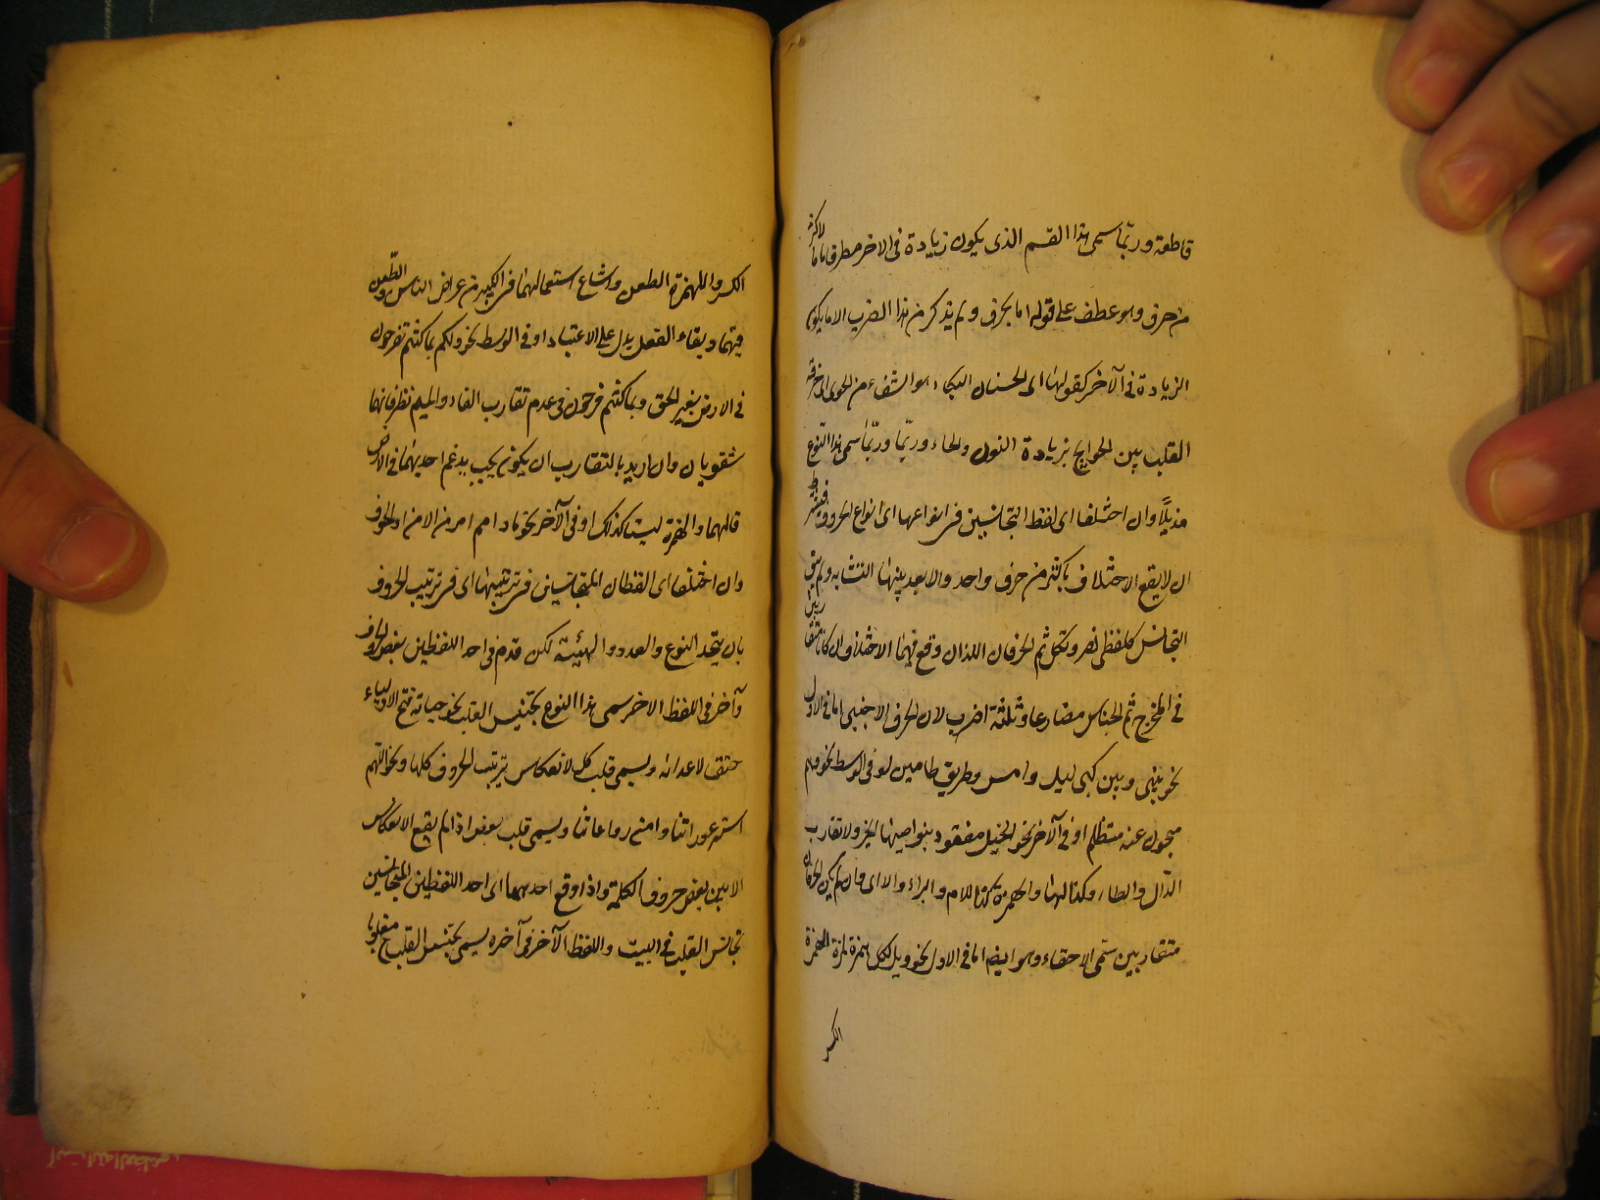 قاطعة وربّما سمى هذا القسم الذى يكون زيادة فى الاخر مطرفا واما باكثر
من حرف وهو عطف على قوله اما بحرف ولم يذكر من هذا الضرب الا ما يكون
الزيادة فى الآخر كقولها اى الخنساء ان البكاء هو الشفاء من الجوى اى حرقة
القلب بين الجوانح بزيادة النون والحاء وربّما وربّما سمى هذا النوع
مذيلاً وان اختلفا اى لفظ المتجانسين فى انواعها اى انواع الحروف فيشترط
ان لا يقع الاختلاف باكثر من حرف واحد والا لبعد بينهما التشابه ولم يبق
التجانس كلفظى نصر ونكل ثم الحرفان اللذان وقع فيهما الاختلاف ان كانا متقاربين
فى المخرج ثم الجناس مضارعا وثلثة اضرب لان الحرف الاجنبى اما فى الاول
نحو بينى وبين كنى ليل دامس وطريق طامس او فى الوسط نحو وهم
ينهون عنه وينأون او فى الآخر نحو الخيل معقود بنواصيها الخير ولا تقارب
الدّال والطاء وكذا الهاء والهمزة وكذا اللام والراء والا اى وان لم يكن الحرفان
متقاربين سمّى لاحقا وهو ايضا اما فى الاول نحو ويل لكل همزة لمزة الهمزة
الكسر
الكسر واللمزة الطعن وشاع استعمالهما فى الكسر من اعراض الناس والطّعن
فيها وبناء الفعل يدل على الاعتياد او فى الوسط نحو ذلكم بما كنتم تفرحون
فى الارض بغير الحق وبما كنتم تمرحون فى عدم تقارب الفاء والميم نظر فانهما
شفويان وان اريد بالتقارب ان يكون بحيث يدغم احديهما فى الاخرى
فالهاء والهمزة ليستا كذلك او فى الآخر نحو فاذا جاءهم امر من الامن او الخوف
وان اختلفا اى اللفظان المتجانسين فى ترتيبها اى فى ترتيب الحروف
بان يتحد النوع والعدد والهيئة لكن قدم فى احد اللفظين بعض الحروف
وآخر فى اللفظ الاخر سمى هذا النوع تجنيس القلب نحو حسامه فتح لاوليائه
حتف لاعدائه ويسمى قلب كل لانعكاس ترتيب الحروف كلها ونحو اللّهم
استر عوراتنا وامن روعاتنا ويسمى قلب بعض اذا لم يقع الانعكاس
الا بين بعض حروف الكلمة واذا وقع احدهما اى احد اللفظين المتجانسين
تجانس القلب فى اول البيت واللفظ الآخر فى آخره يسمى تجنيس القلب ح مقلوبا